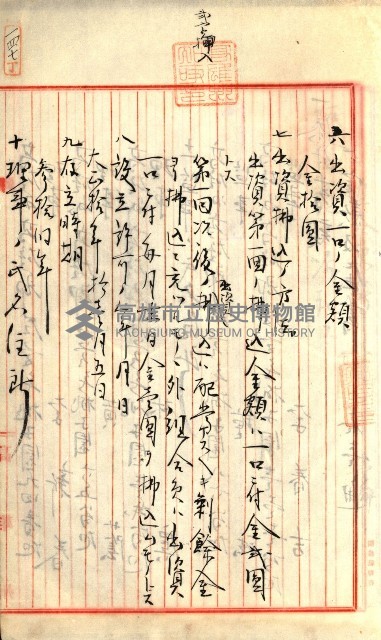 六出資一口ノ金額
金拾圓
七出資拂込ノ方法
出資第一回ノ拂込金額ハ一口ニ付金貳圓
トス
第一回次後ノ拂込ハ配當スヘキ剰餘金
ヨリ拂込ニ充ツルモノノ外組合員ハ出資
一口ニ付毎月 日金壹圓ヲ拂込ムモノトス
八設立許可ノ年月日
大正拾年拾 月五日
九存立時期
參拾個年
十理事ノ氏名住所
高雄市立歷史博物館
KAOHSIUNG MUSEUM OF HISTORY